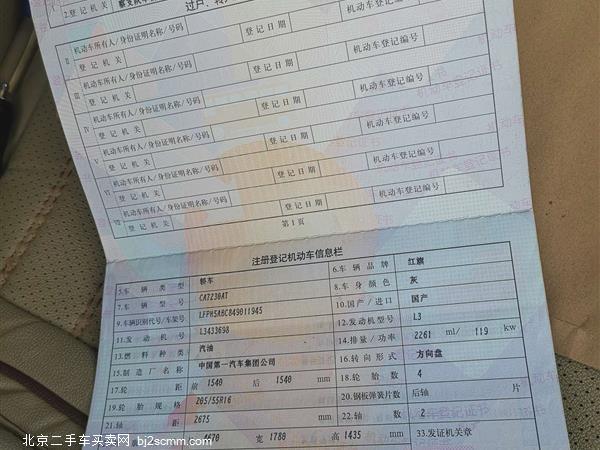 2.登记机关
过户、转
Ⅱ 机动车所有人/身份证明名称/号码
登记机关 登记日期 机动车登记编号
Ⅲ 机动车所有人/身份证明名称/号码
登记机关 登记日期 机动车登记编号
Ⅳ 机动车所有人/身份证明名称/号码
登记机关 登记日期 机动车登记编号
Ⅴ 机动车所有人/身份证明名称/号码
登记机关 登记日期 机动车登记编号
Ⅵ 机动车所有人/身份证明名称/号码
登记机关 登记日期 机动车登记编号
Ⅶ 机动车所有人/身份证明名称/号码
登记机关 登记日期 机动车登记编号
第1页
注册登记机动车信息栏
5.车辆类型 轿车 6.车辆品牌 红旗
7.车辆型号 CA7230AT 8.车身颜色 灰
9.车辆识别代号/车架号 LFPH5ABC849011945 10.国产/进口 国产
11.发动机号 L3433698 12.发动机型号 L3
13.燃料种类 汽油 14.排量/功率 2261 ml/ 119 kw
15.制造厂名称 中国第一汽车集团公司 16.转向形式 方向盘
17.轮距 前 1540 后 1540 mm 18.轮胎数 4
19.轮胎规格 205/55R16 20.钢板弹簧片数 后轴 片
21.轴距 2675 mm 22.轴数 2
4670 宽 1780 高 1435 mm 33.发证机关章
北京二手车买卖网 bj2scmm.com